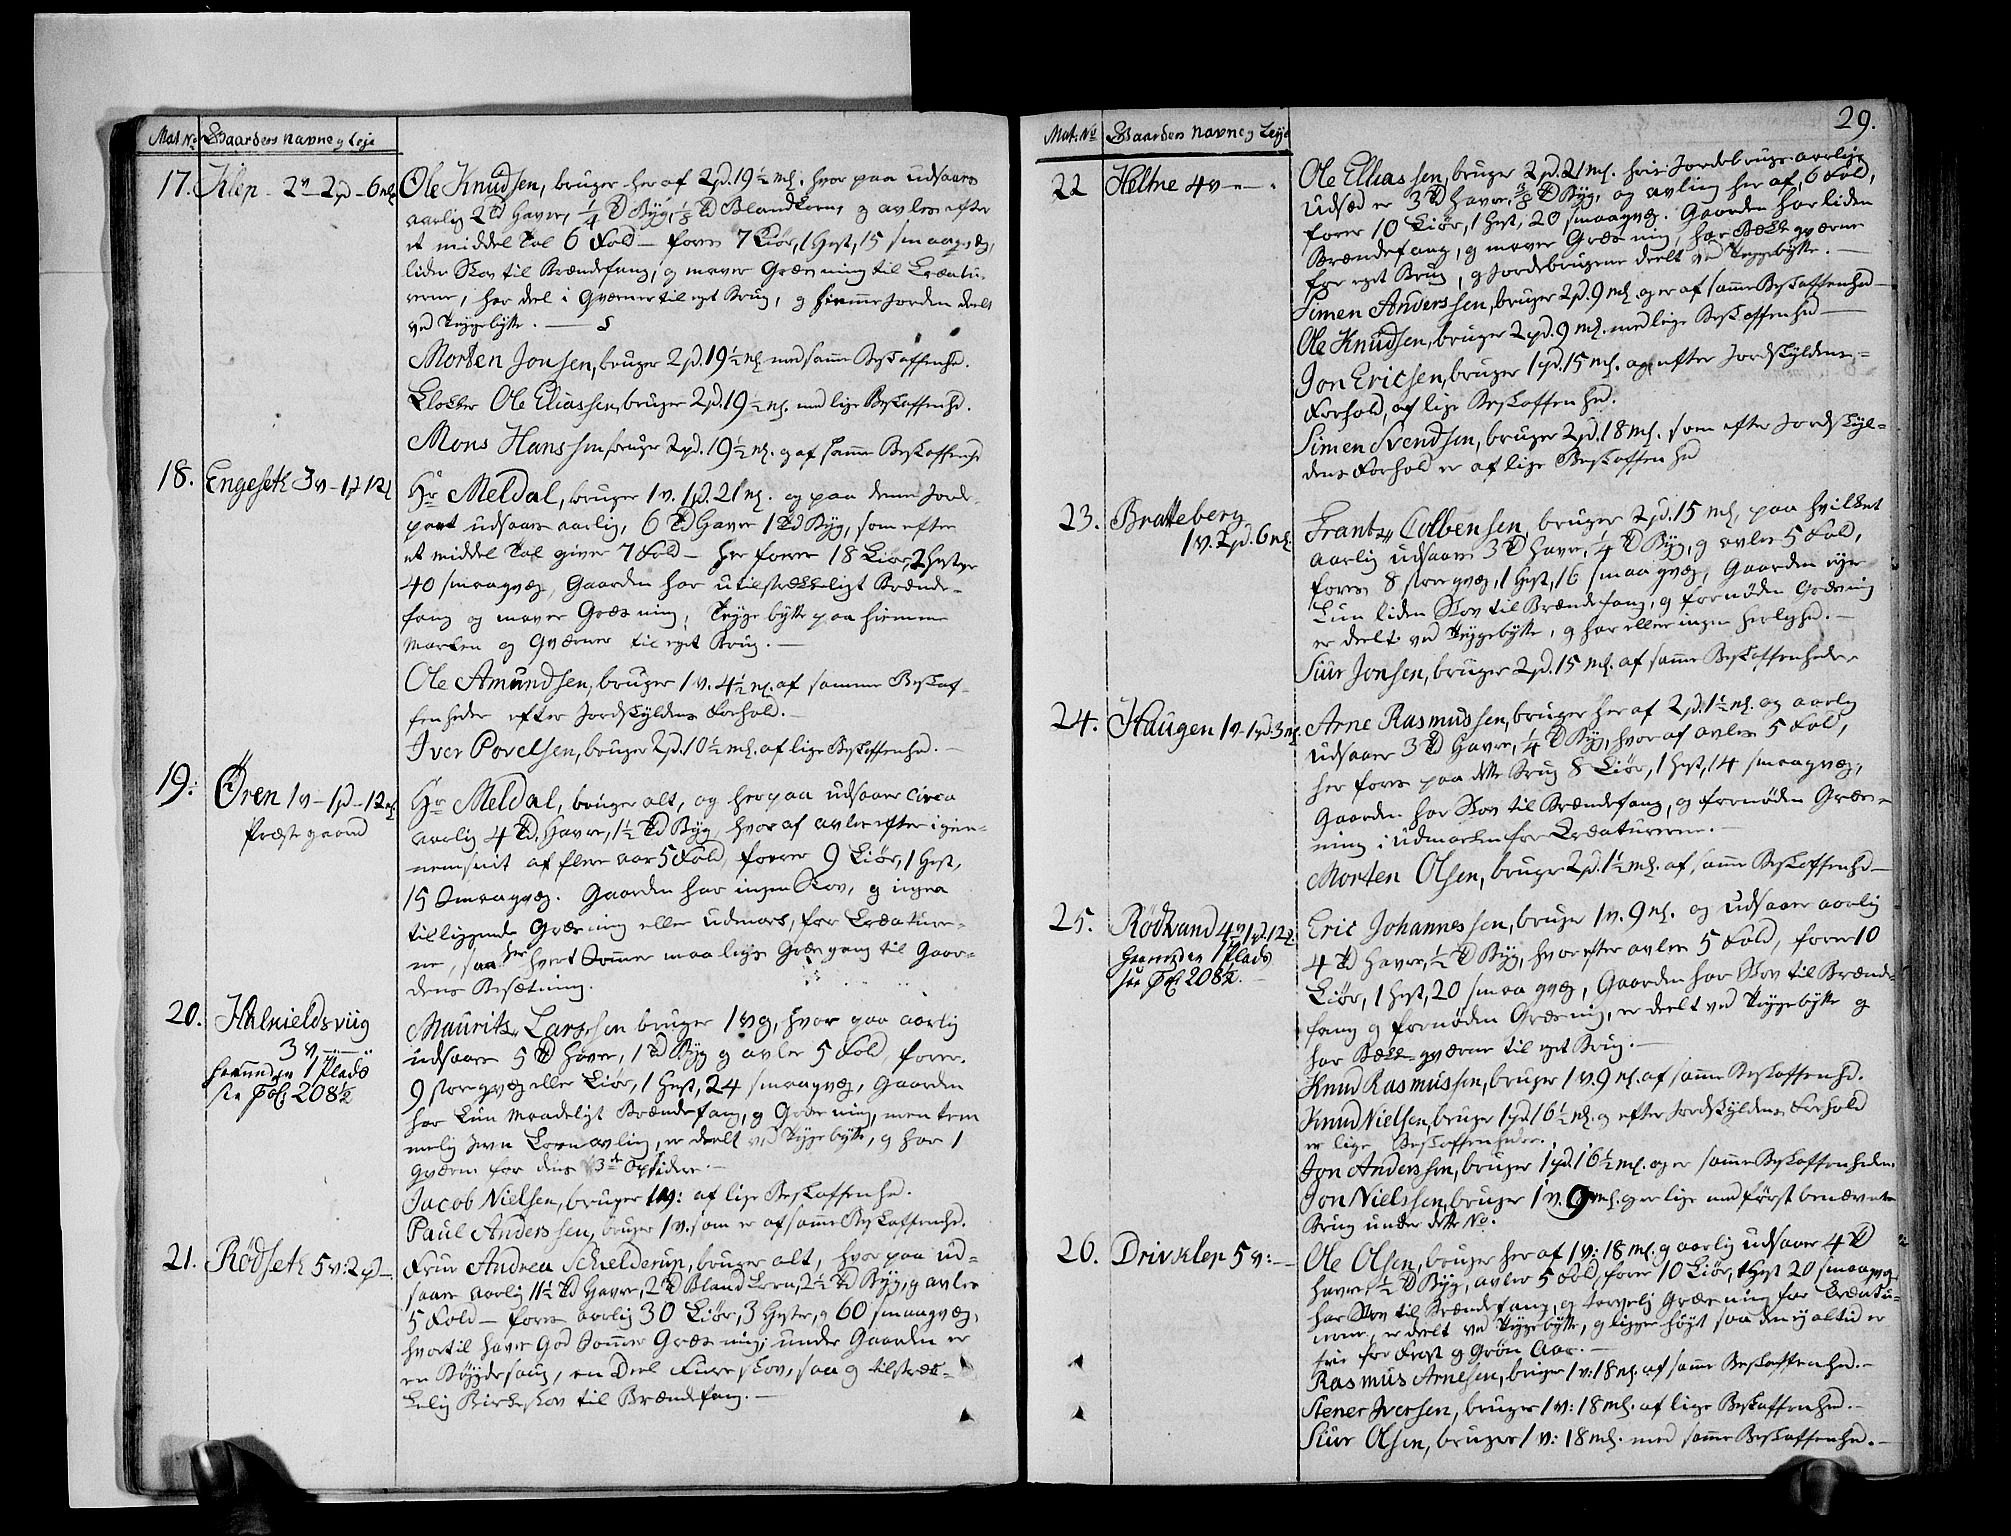 Mat. No Gaardens Navne og Leje
17. Klep - 2v - 2pd - 6mk
Ole Knudsen, bruger her af 2pd. 19½ mk. hvor paa udsaaes
aarlig 2 Td Havre, ¼ Td Byg, ⅛ Td Blandkorn, og avles efter
et middel Tal 6 Fold - fores 7 Kiør, 1 Hest, 15 smaaqvæg,
liden Skov til Brændefang, og maver Græsning til Kreatu-
rerne, har deel i Qværner til eget Brug, og hiemme Jorden deelt
ved Teygebytte. —
Morten Jonsen, bruger 2pd. 19½ mk. med samme Beskaffenhed.
Klocker Ole Eliassen, bruger 2pd. 19½ mk. med lige Beskaffenhed.
Mons Hanssen, bruger 2pd. 19½ mk. og af samme Beskaffenhed
18. Engeseth 3v - 1p 12mk
Hr Meldal, bruger 1v. 1pd. 21mk. og paa denne Jorde-
part udsaaes aarlig, 6 Td Havre 1 Td Byg, som efter
et middel Tal giver 7 Fold - her fores 18 Kiør, 2 Hester
40 smaaqvæg, Gaarden har utilstrækkeligt Brænde-
fang og maver Græsning, Teygebytte paa hiemme
marken og Qværner til eget Brug. —
Ole Amundsen, bruger 1v. 4½ mk. af samme Beskaf-
fenheder efter Jordskyldens Forhold. —
Iver Povelsen, bruger 2pd. 10½ mk. af lige Beskaffenhed. —
19. Øren 1v - 1pd - 12mk
Præstegaard
Hr Meldal, bruger alt, og herpaa udsaaes circa
aarlig 4 Td. Havre, 1½ Td Byg, hvoraf avles efter igien-
nemsnit af flere aar 5 Fold, fores 9 Kiør, 1 Hest,
15 Smaaqvæg. Gaarden har ingen Skov, og ingen
tilliggende Græsning eller udmark, for Kreature-
ne, saa hver Sommer maa lejes Græsgang til Gaar-
dens Besætning.
20. Halkieldsviig
3v,
herunder 1 Plads
see Fol: 208½
Maurits Larssen bruger 1 vg, hvor paa aarlig
udsaaes 5 Td Havre, 1 Td Byg og avles 5 Fold, fores
9 storeqvæg eller Kiør, 1 Hest, 24 smaaqvæg, Gaarden
har kun maadeligt Brændefang, og Græsning, men tem
melig Korn avling, er deelt ved Teygebytte, og har 1
Qværn for dens 3de Opsidere. —
Jacob Nielsen, bruger 1v: af lige Beskaffenhed.
Paul Anderssen, bruger 1v. som er af samme Beskaffenhed.
21. Rødseth 5v: 2p —
Frue Andrea Schielderup, bruger alt, hvor paa ud-
saaes aarlig 11½ Td Havre, 2 Td Blandkorn, 2½ Td Byg, og avles
5 Fold - fores aarlig 30 Kiør, 3 Hester, og 60 smaaqvæg,
hvortil haves God Sommer Græsning; under Gaarden er
en Bøygdesaug, en Deel Fureskov, saa og tilstræk-
kelig Birkeskov til Brændefang. —
29.
Mat. No Gaardens Navne og Leje
22 Heltne 4v - - .
Ole Elliassen, bruger 2pd. 21mk. hvis Jordebruges aarlige
Udsæd er 3 Td Havre, Td Byg, og avling her af, 6 Fold,
fores 10 Kiør, 1 Hest, 20 smaaqvæg. Gaarden har liden
Brændefang, og maver Græsning, har Bekk qværne
for eget Brug, og Jordebrugene deelt ved Teygebytte. —
Simen Anderssen, bruger 2pd. 9mk. og er af samme Beskaffenhed —
Ole Knudsen, bruger 2pd. 9mk. med lige Beskaffenhed —
Jon Ericsen, bruger 1pd. 15mk. og efter Jordskyldens -
Forhold, af lige Beskaffenhed.
Simen Svendsen, bruger 2pd. 18mk. som efter Jordskyl-
dens Forhold er af lige Beskaffenhed
23. Bratteberg
1v. 2pd. 6mk.
Frantz Colbensen, bruger 2pd. 15mk, paa hvilket
aarlig udsaaes 3 Td Havre, ¼ Td Byg, og avles 5 Fold,
fores 8 storeqvæg, 1 Hest, 16 smaaqvæg, Gaarden ejer
kun liden Skov til Brændefang, og fornøden Græsning
er deelt ved Teygebytte, og har ellers ingen herlighed. —
Siur Jonsen, bruger 2pd. 15mk. af samme Beskaffenheder
24. Haugen 1v - 1pd. 3mk.
Arne Rasmussen, bruger her af 2pd. 1½ mk. og aarlig
udsaaer 3 Td Havre, ¼ Td Byg, hvor af avles 5 Fold,
her fores paa dette Brug 8 Kiør, 1 Hest, 14 smaaqvæg,
Gaarden har Skov til Brændefang, og fornøden Græs-
ning i udmarken for Kreaturerne. —
Morten Olsen, bruger 2pd. 1½ mk. af samme Beskaffenhed —
25. Rødvand 4v 1pd. 12mk
herunder 1 Plads
see Fol: 208½. —
Eric Johannessen, bruger 1v. 9mk. og udsaaer aarlig
4 Td Havre, ½ Td Byg, hvorefter avles 5 Fold, fores 10
Kiør, 1 Hest, 20 smaaqvæg, Gaarden har Skov til Brænde-
fang og fornøden Græsning, er deelt ved Teygebytte og
har Bekk-qværne til eget Brug. —
Knud Rasmussen, bruger 1v. 9mk. af samme Beskaffenhed.
Knud Nielsen, bruger 1pd. 16½ mk. og efter Jordskyldens Forhold
er lige Beskaffenheder.
Jon Anderssen, bruger 1pd. 16½ mk. og er samme Beskaffenheder.
Jon Nielssen, bruger 1v. 9mk. og er lige med først benævnte
Brug under dette No.
26. Drivklep 5v: —
Ole Olsen, bruger her af 1v: 18mk. og aarlig udsaaer 4 Td
Havre, ½ Td Byg, avles 5 Fold, fores 10 Kiør, 1 Hest 20 smaaqvæg
har Skov til Brændefang, og Torvelig Græsning for Kreatu-
rerne, er deelt ved Teygebytte, og ligger høyt saa den ej altid er
frie for Frost og Grøn Aar. —
Rasmus Arnesen, bruger 1v: 18mk. af samme Beskaffenhed. —
Stener Iversen, bruger 1v: 18mk. af lige Beskaffenhed. —
Siur Olsen, bruger 1v: 18mk. med samme Beskaffenhed. —